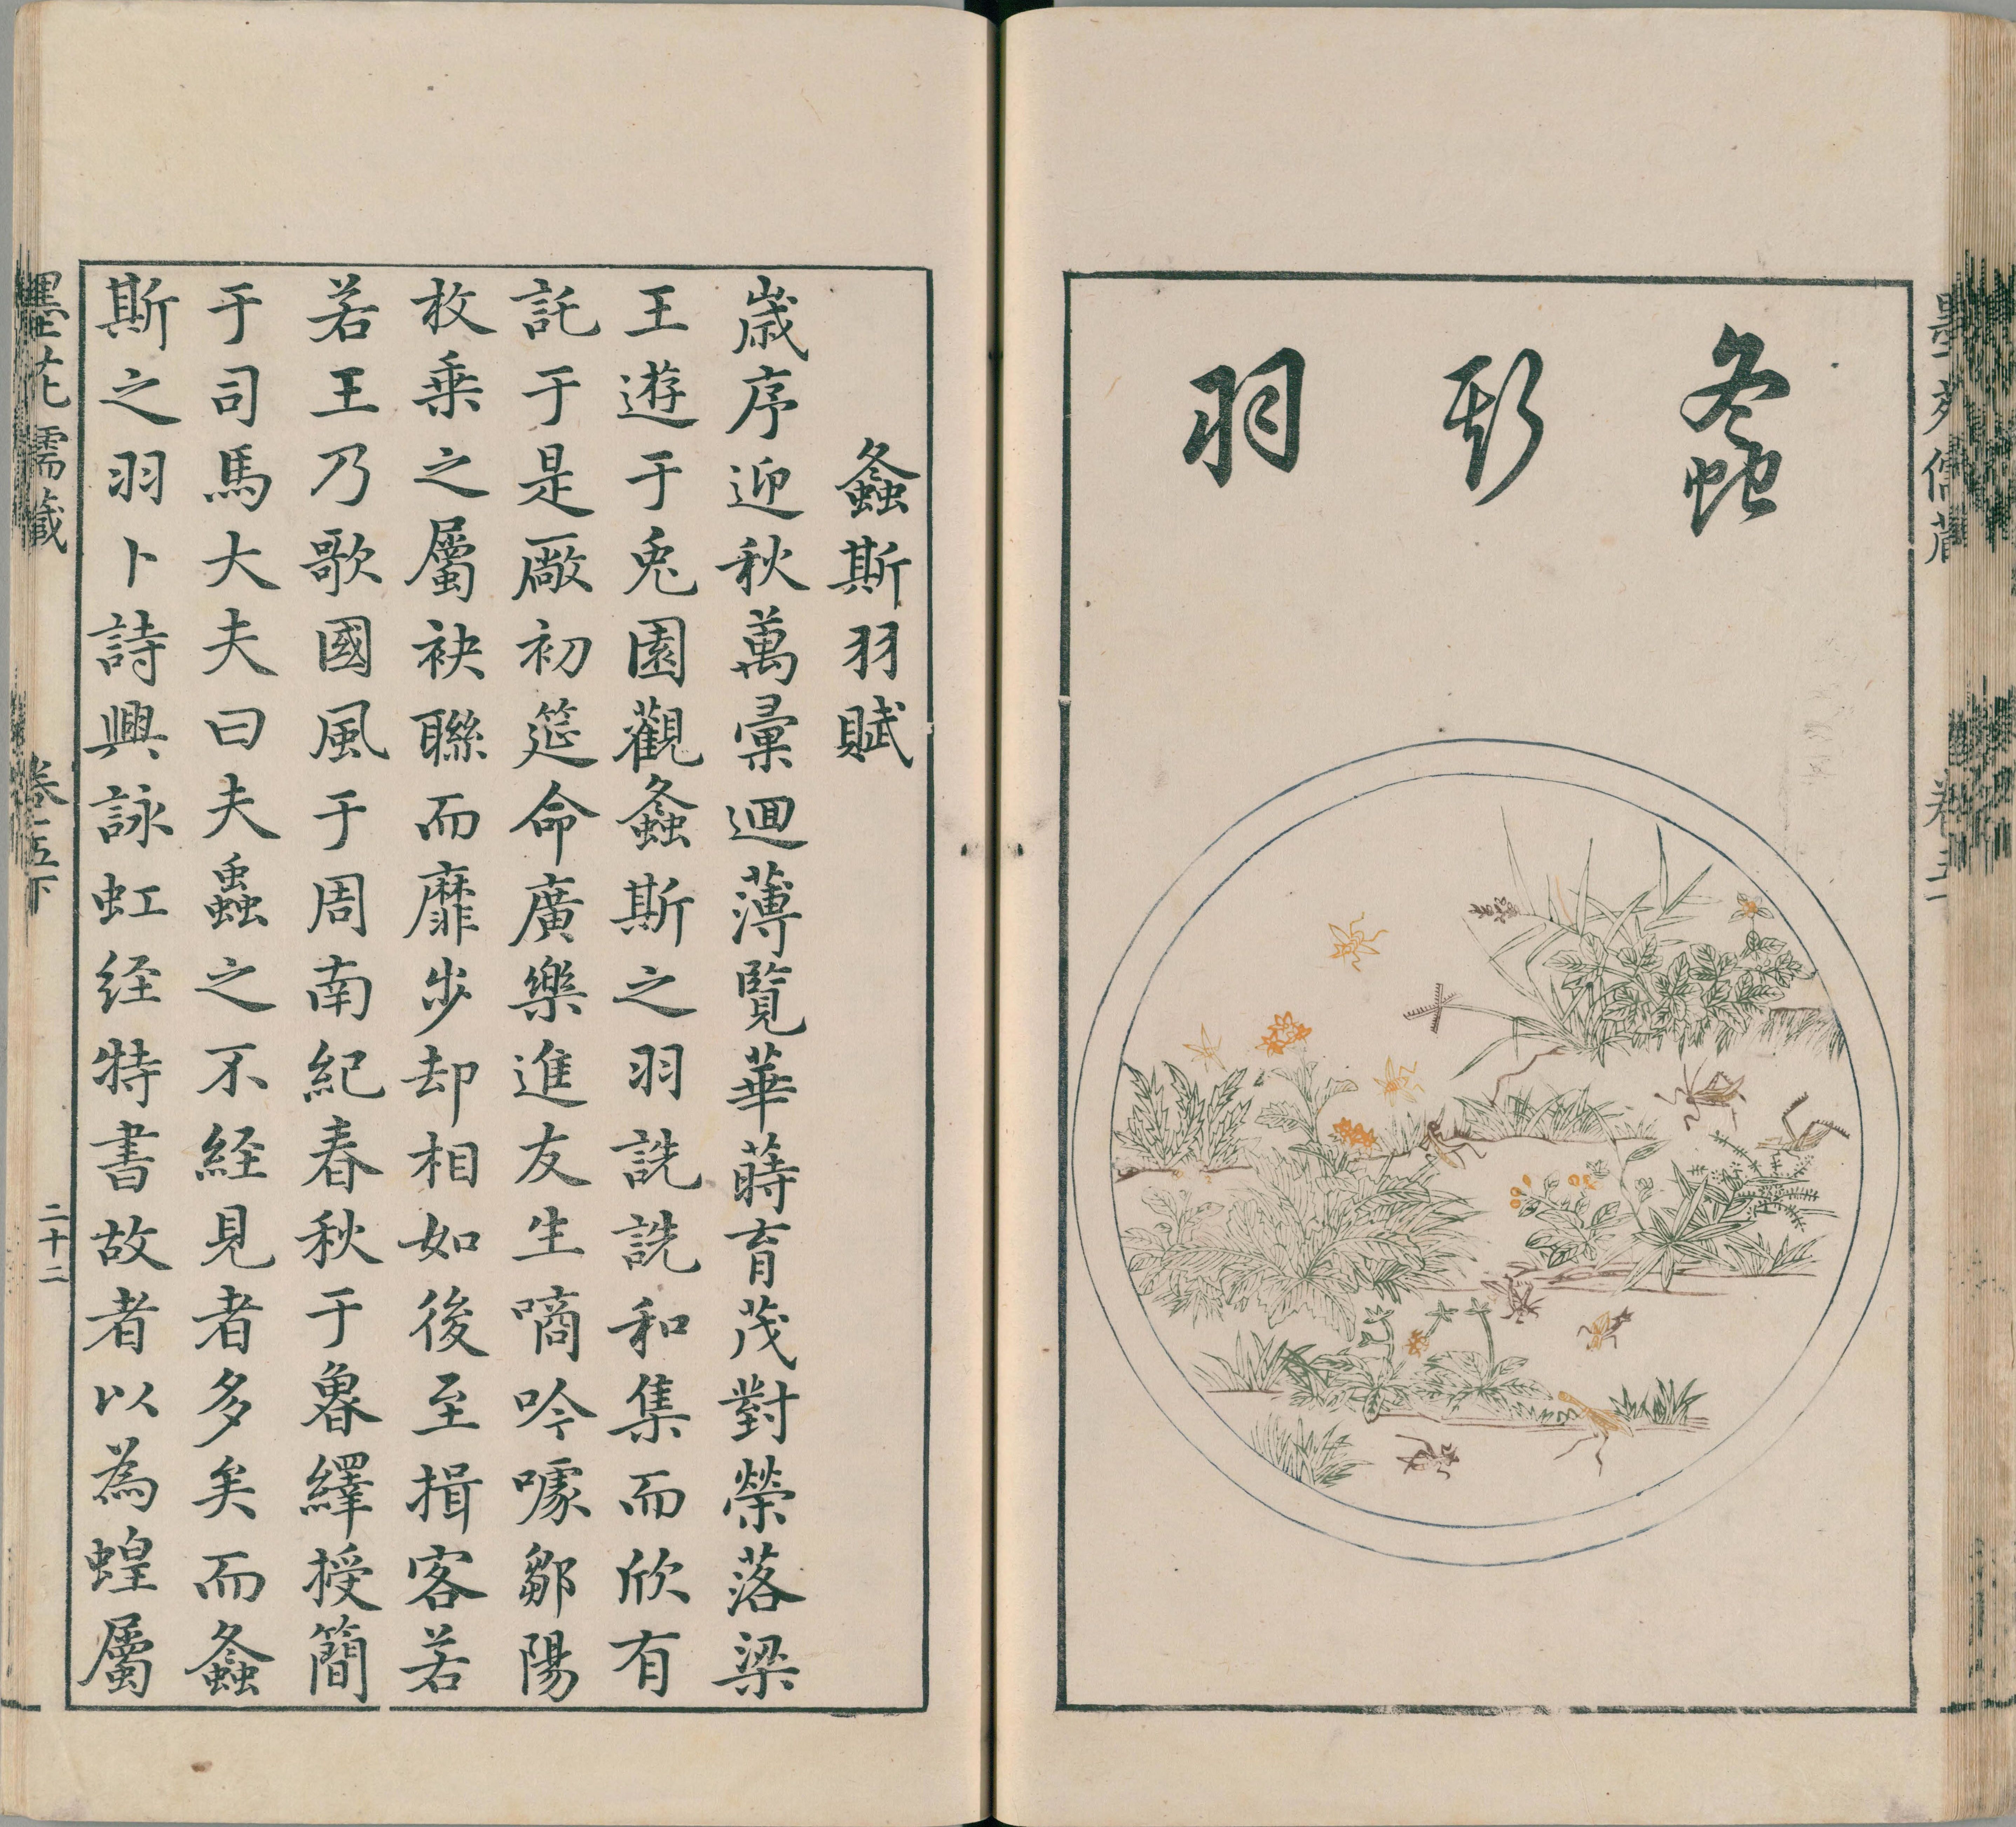 螽斯羽
螽斯羽賦
歲序迎秋萬彙迴薄覽華蒔育茂對榮落梁
王遊于兎園觀螽斯之羽詵詵和集而欣有
託于是厰初筵命廣樂進友生嘀吟噱鄒陽
枚乗之屬袂聯而靡步却相如後至揖客若
若王乃歌國風于周南紀春秋于魯繹授簡
于司馬大夫曰夫蟲之不経見者多矣而螽
斯之羽卜詩興詠虹経特書故者以為蝗屬
墨苑 儒藏
卷五下
二十二